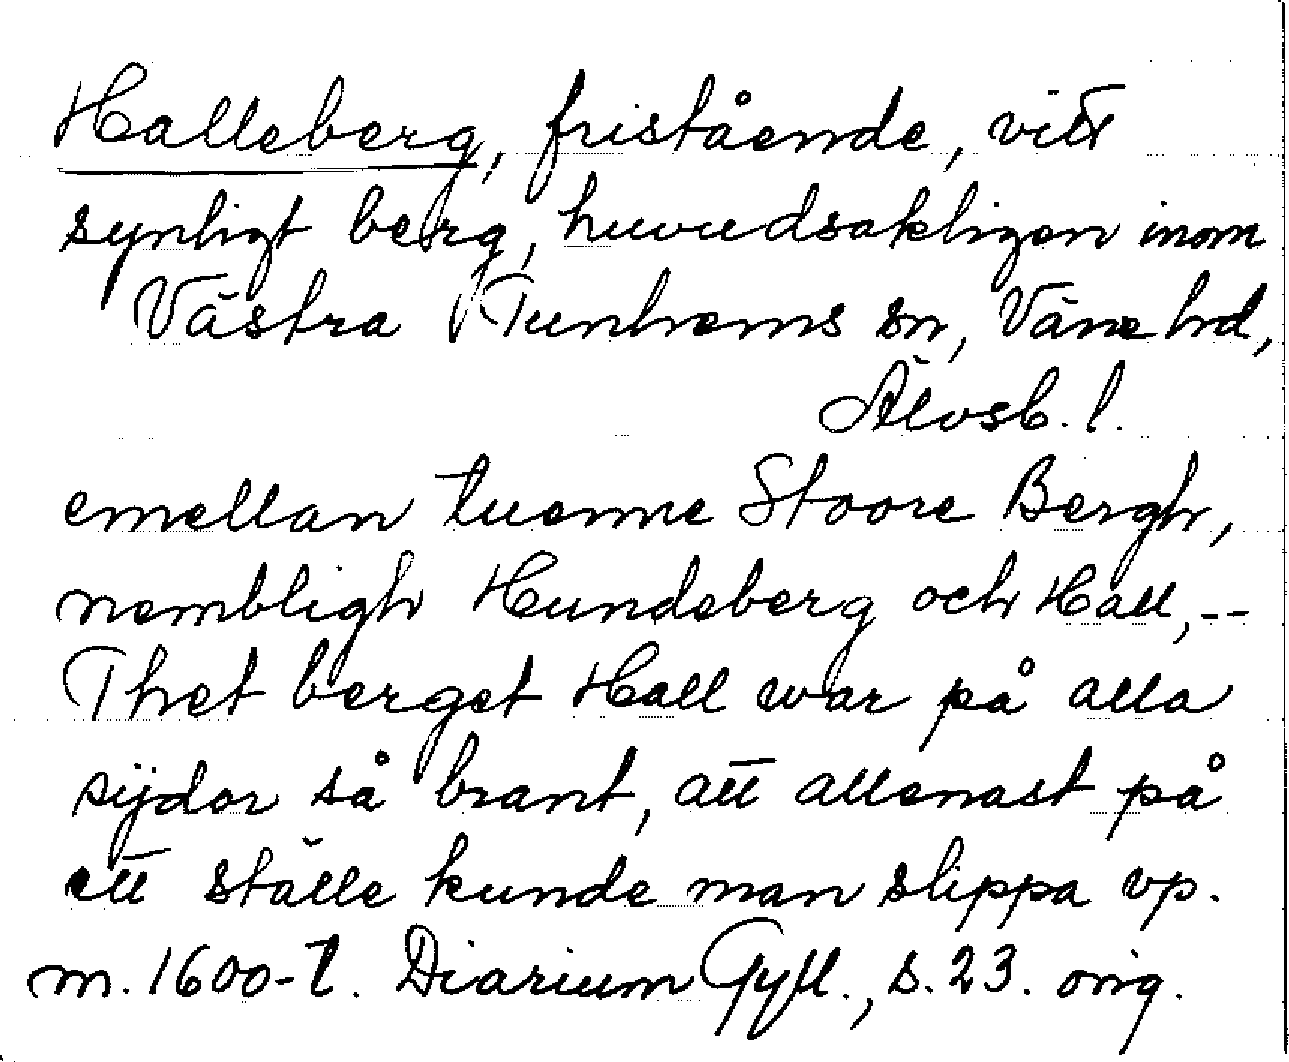 Halleberg, fristående, vitt
synligt berg, huvudsakligen inom
Västra Tunhems sn, Väne hd,
Älvsb. l.
emellan tuenne Stoore Bergh,
nembligh Hundeberg och Hall,--
Thet berget Hall war på alla
sijdor så brant, att allenast på
ett ställe kunde man slippa vp.
m. 1600-t. Diarium Gyll., s. 23. orig.